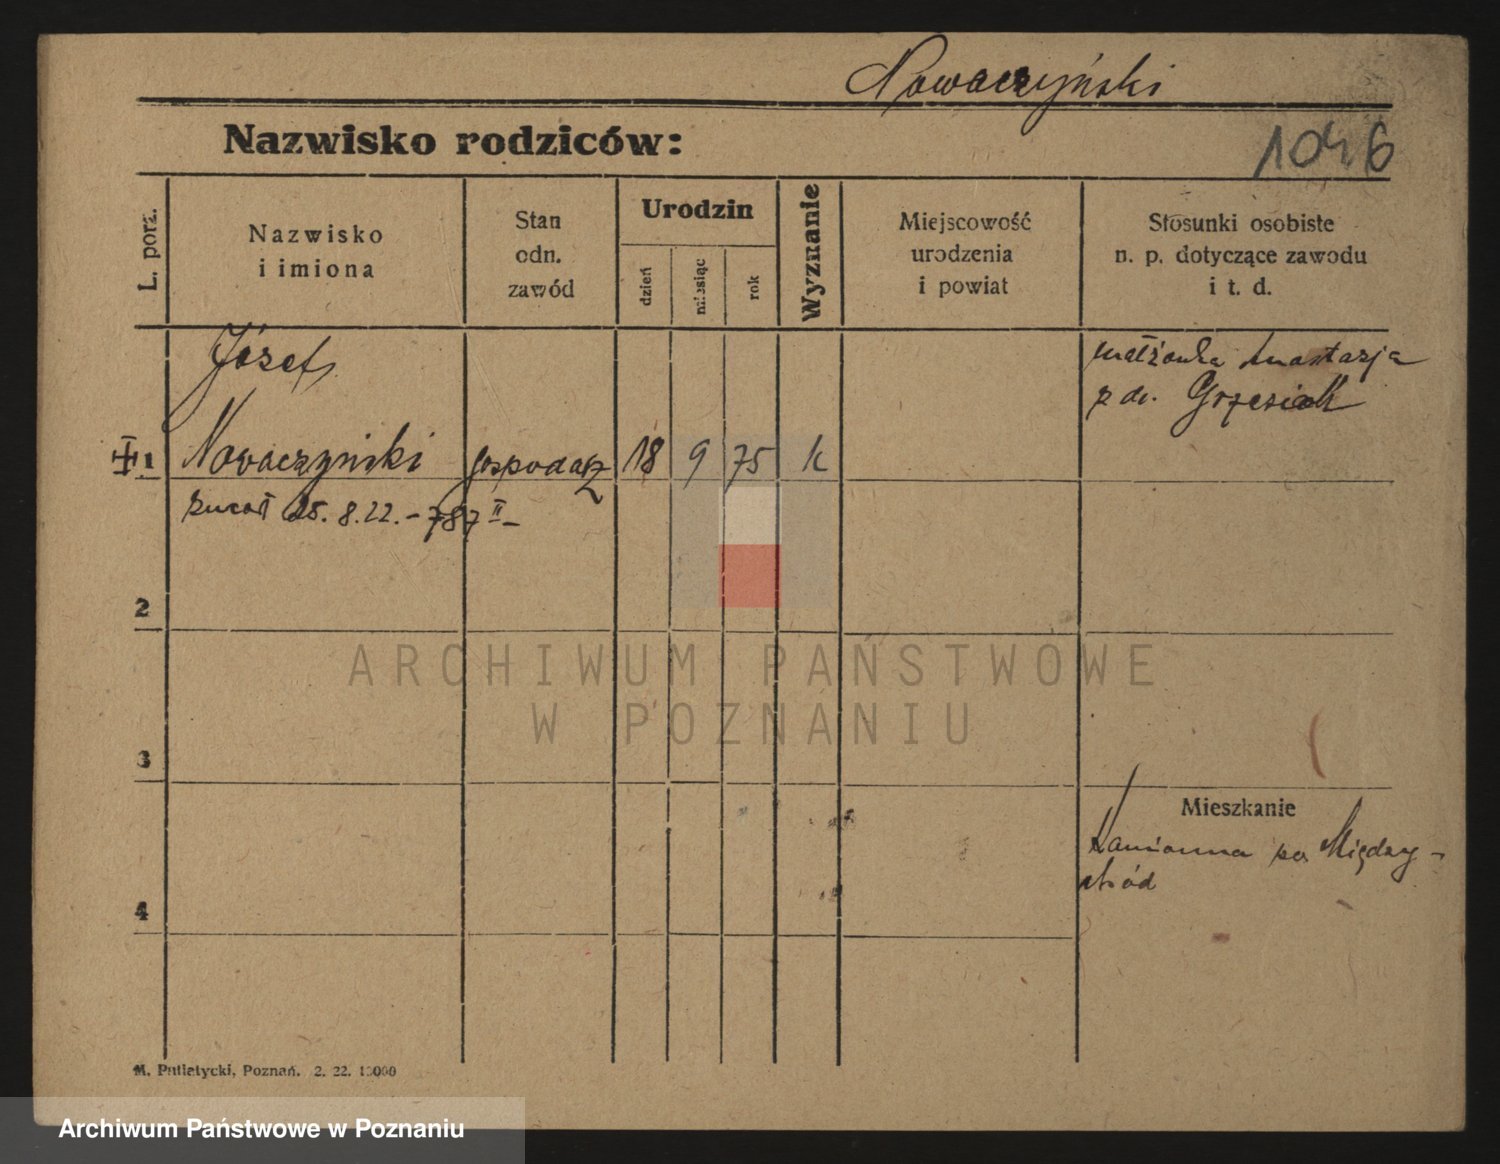 Nowaczyński
Nazwisko rodziców:
1046
L. porz.
Nazwisko
i imiona
Stan
odn.
zawód
Urodzin
dzień
miesiąc
rok
Wyznanie
Miejscowość
urodzenia
i powiat
Stosunki osobiste
n. p. dotyczące zawodu
i t. d.
Józef
małżonka Anastazja
z d. Grzesiak
1 Nowaczyński gospodarz 18 9 75 k
zmarł 25. 8. 22. - 787 II -
2
ARCHIWUM PAŃSTWOWE
W POZNANIU
3
Mieszkanie
Kamionna po. Między-
chód
4
M. Putiatycki, Poznań. 2. 22. 10000
Archiwum Państwowe w Poznaniu